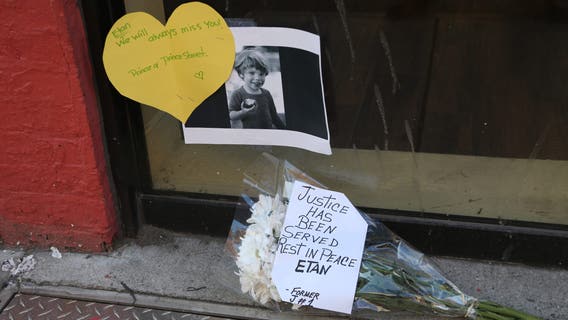 Etan
We will always miss you!
Prince of Prince Street!
JUSTICE
HAS
BEEN
SERVED
REST IN PEACE
ETAN
- FORMER